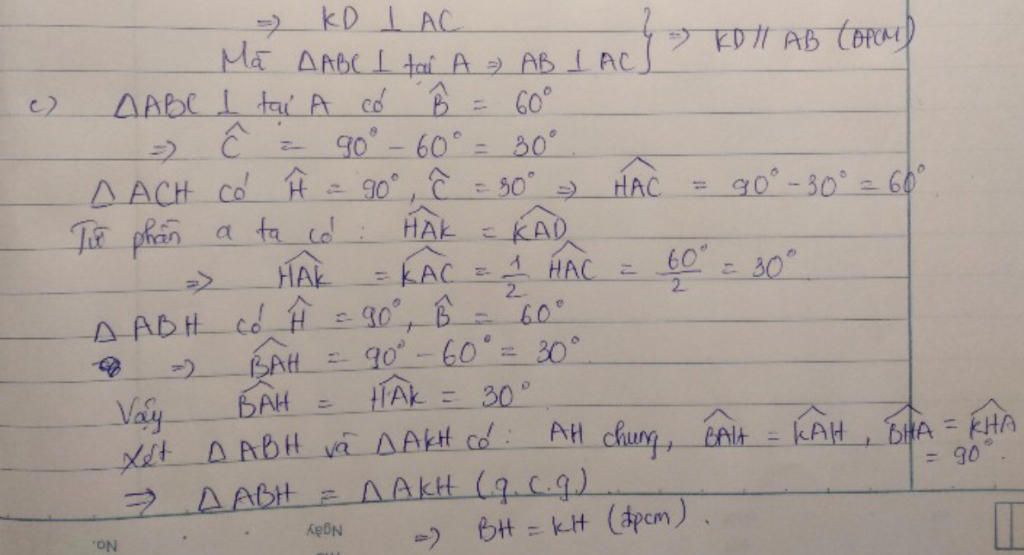 => KD ⊥ AC
Mà ΔABC ⊥ tại A => AB ⊥ AC } => KD // AB (ĐPCM)
c) ΔABC ⊥ tại A có B̂ = 60°
=> Ĉ = 90° - 60° = 30°
ΔACH có Ĥ = 90°, Ĉ = 30° => HAC = 90° - 30° = 60°
Từ phần a ta có : HAK = KAD
=> HAK = KAC = 1/2 HAC = 60°/2 = 30°
ΔABH có Ĥ = 90°, B̂ = 60°
=> BAH = 90° - 60° = 30°
Vậy BAH = HAK = 30°
Xét ΔABH và ΔAKH có : AH chung, BAH = KAH, BHA = KHA
= 90°.
=> ΔABH = ΔAKH (g.c.g)
=> BH = KH (đpcm).
Ngày
No.